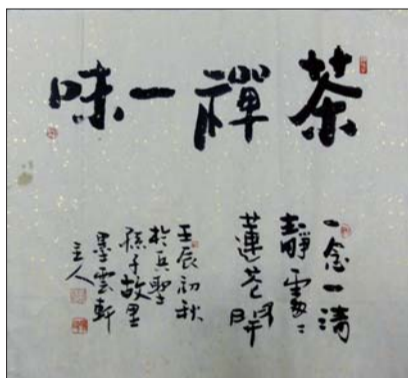 茶禪一味
一念一清
靜處處
蓮芲開
壬辰初秋
於兵聖
孫子故里
墨雲軒
主人